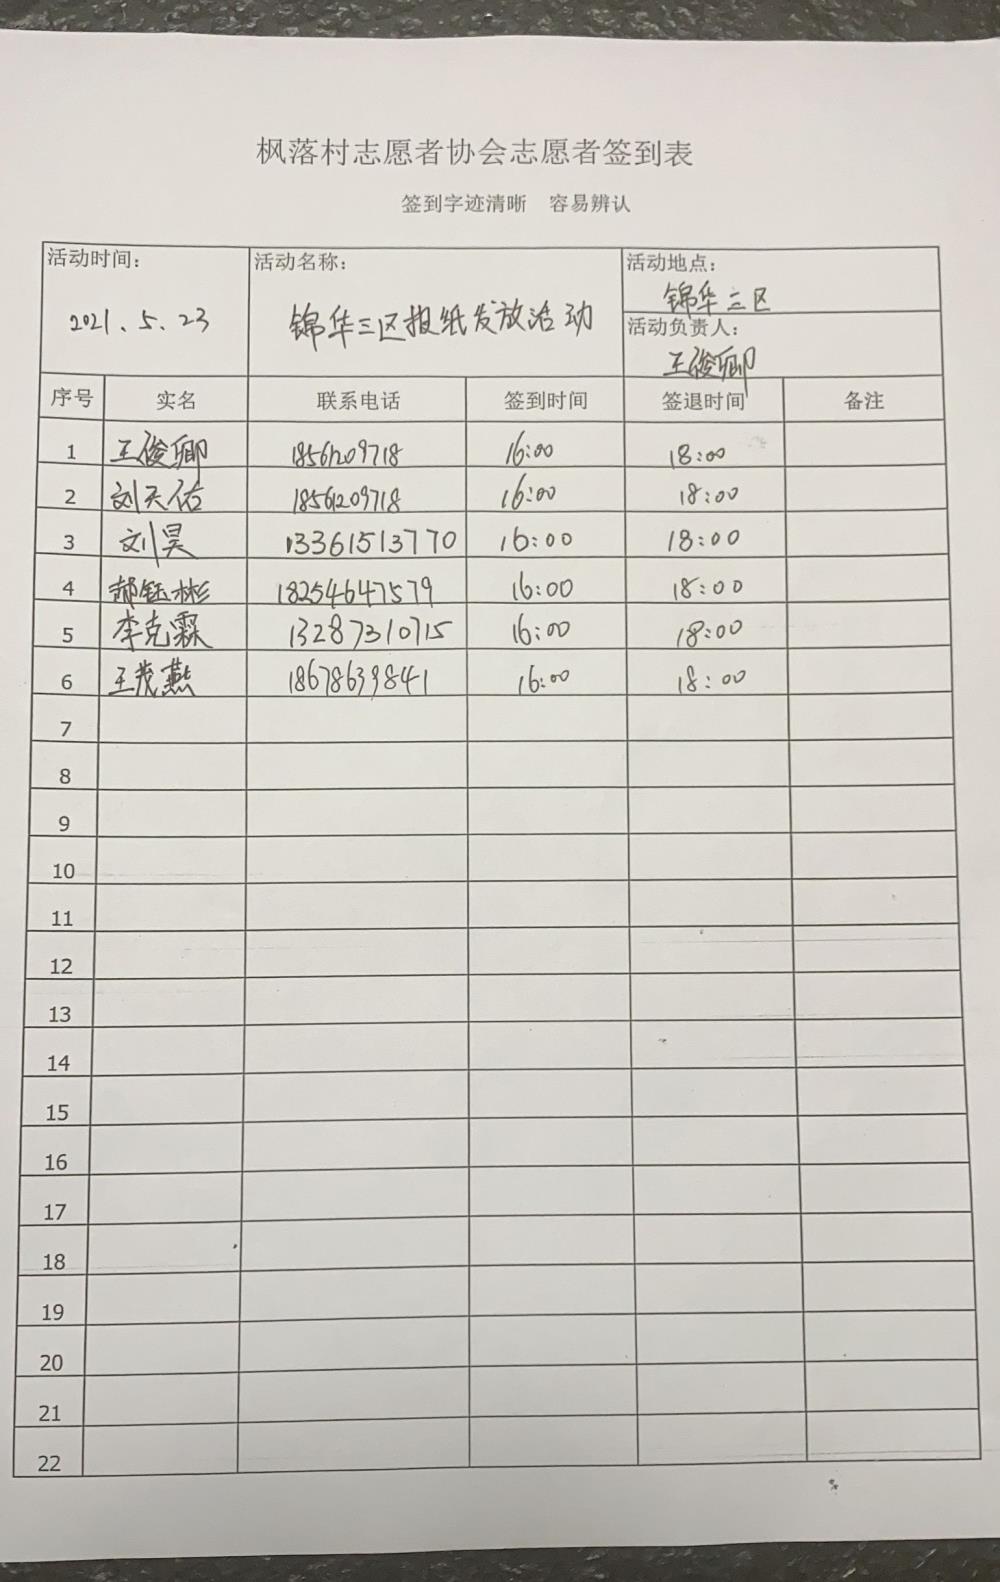 枫落村志愿者协会志愿者签到表
签到字迹清晰 容易辨认
活动时间: 活动名称: 活动地点:
2021.5.23 锦华三区报纸发放活动 锦华三区
活动负责人:
王俊卿
序号 实名 联系电话 签到时间 签退时间 备注
1 王俊卿 18561209718 16:00 18:00
2 刘天佑 18561209718 16:00 18:00
3 刘昊 13361513770 16:00 18:00
4 郝钰彬 18254647579 16:00 18:00
5 李克霖 13287310715 16:00 18:00
6 王茂燕 18678639841 16:00 18:00
7
8
9
10
11
12
13
14
15
16
17
18
19
20
21
22